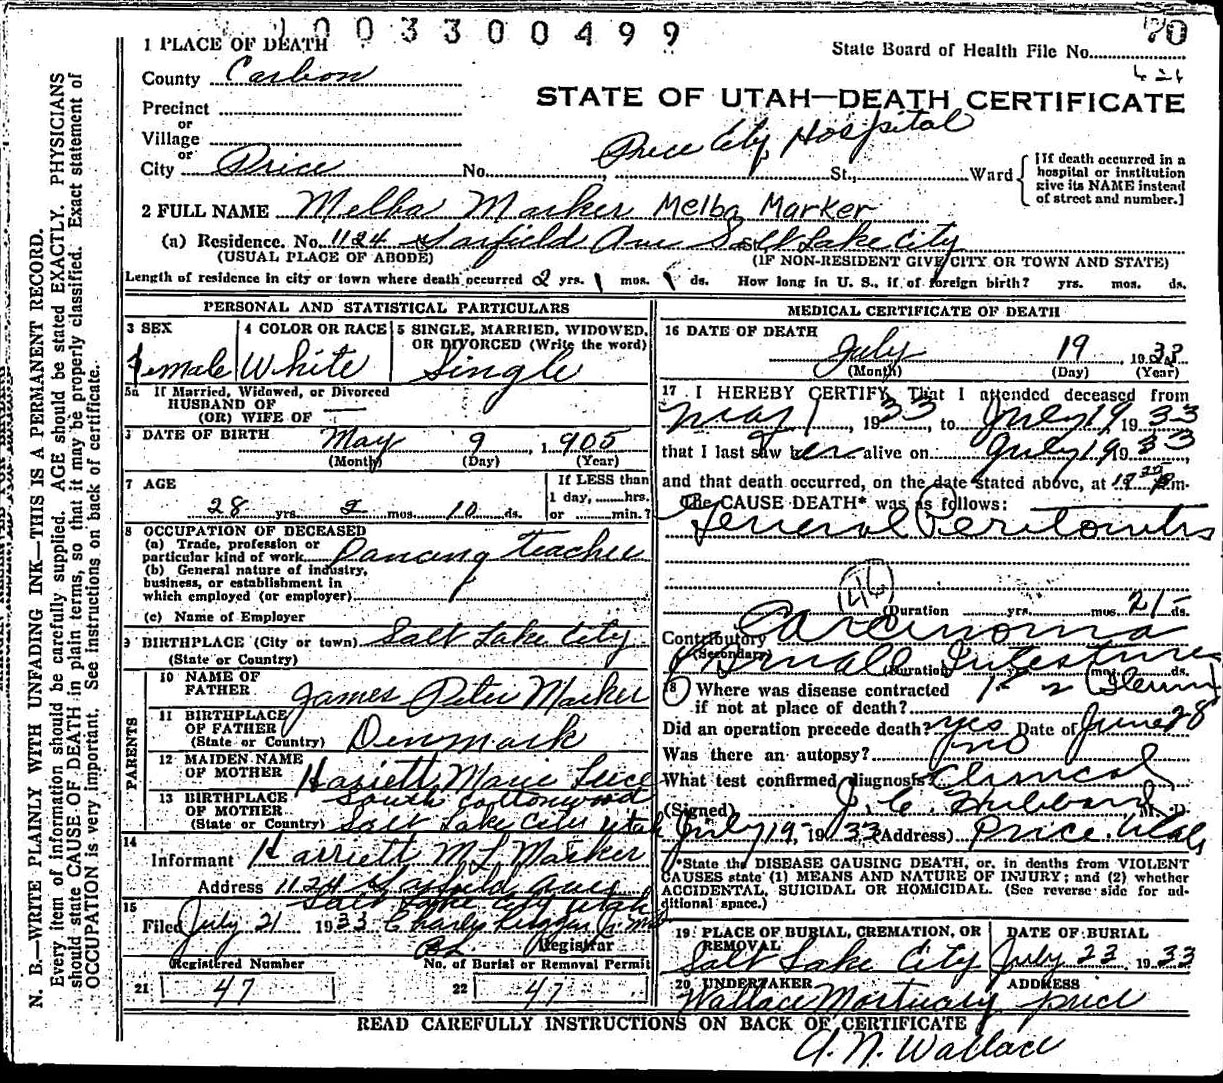 1003300499
70
1 PLACE OF DEATH
State Board of Health File No.
421
County Carbon
STATE OF UTAH—DEATH CERTIFICATE
Precinct
or
Village
or
City Price No. Price City Hospital St., Ward
[If death occurred in a
hospital or institution
give its NAME instead
of street and number.]
2 FULL NAME Melba Marker Melba Marker
(a) Residence. No. 1124 Garfield Ave Salt Lake City
(USUAL PLACE OF ABODE) (IF NON-RESIDENT GIVE CITY OR TOWN AND STATE)
Length of residence in city or town where death occurred 2 yrs. 1 mos. 1 ds. How long in U. S., if of foreign birth? yrs. mos. ds.
PERSONAL AND STATISTICAL PARTICULARS
3 SEX 4 COLOR OR RACE 5 SINGLE, MARRIED, WIDOWED,
OR DIVORCED (Write the word)
Female White Single
5a If Married, Widowed, or Divorced
HUSBAND OF
(OR) WIFE OF —
DATE OF BIRTH May 9, 1905
(Month) (Day) (Year)
7 AGE If LESS than
1 day, hrs.
28 yrs. 2 mos. 10 ds. or min.?
8 OCCUPATION OF DECEASED
(a) Trade, profession or
particular kind of work Dancing teacher
(b) General nature of industry,
business, or establishment in
which employed (or employer)
(c) Name of Employer
9 BIRTHPLACE (City or town) Salt Lake City
(State or Country)
PARENTS
10 NAME OF
FATHER James Peter Marker
11 BIRTHPLACE
OF FATHER
(State or Country) Denmark
12 MAIDEN NAME
OF MOTHER Hariett Marie
13 BIRTHPLACE South Cottonwood
OF MOTHER
(State or Country) Salt Lake City Utah
14
Informant Harriett M L Marker
Address 1124 Garfield Ave
Salt Lake City Utah
15
Filed July 21 1933
Registrar
Registered Number No. of Burial or Removal Permit
21 47 22 47
MEDICAL CERTIFICATE OF DEATH
16 DATE OF DEATH
July 19, 1933
(Month) (Day) (Year)
17 I HEREBY CERTIFY, That I attended deceased from
May 1, 1933, to July 19 1933
that I last saw her alive on July 19 1933,
and that death occurred, on the date stated above, at m.
The CAUSE DEATH* was as follows:
General Peritonitis
46
(Duration yrs. mos. 21 ds.
Contributory Carcinoma
(Secondary)
Small Intestine
(Duration yrs. mos. ds.
18 Where was disease contracted
if not at place of death?
Did an operation precede death? yes Date of June 28
Was there an autopsy? no
What test confirmed diagnosis Clinical
(Signed) J. C. Hubbard M. D.
July 19, 1933 (Address) Price, Utah
*State the DISEASE CAUSING DEATH, or, in deaths from VIOLENT
CAUSES state (1) MEANS AND NATURE OF INJURY; and (2) whether
ACCIDENTAL, SUICIDAL OR HOMICIDAL. (See reverse side for ad-
ditional space.)
19 PLACE OF BURIAL, CREMATION, OR
REMOVAL
Salt Lake City
DATE OF BURIAL
July 23 1933
20 UNDERTAKER ADDRESS
Wallace Mortuary Price
READ CAREFULLY INSTRUCTIONS ON BACK OF CERTIFICATE
A. N. Wallace
N. B.—WRITE PLAINLY WITH UNFADING INK—THIS IS A PERMANENT RECORD.
Every item of information should be carefully supplied. AGE should be stated EXACTLY. PHYSICIANS
should state CAUSE OF DEATH in plain terms, so that it may be properly classified. Exact statement of
OCCUPATION is very important. See instructions on back of certificate.